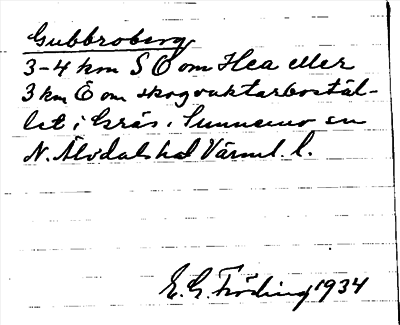 Gubbroberg
3-4 km SO om Hea eller
3 km O om skogvaktarbostäl-
let i Gräs. Sunnemo sn
N. Älvdals hd Värml. l.
E. G. Fröding 1934